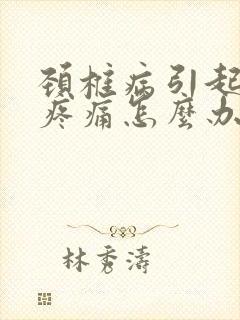 頚椎病引起
疼痛怎麼办
林秀濤